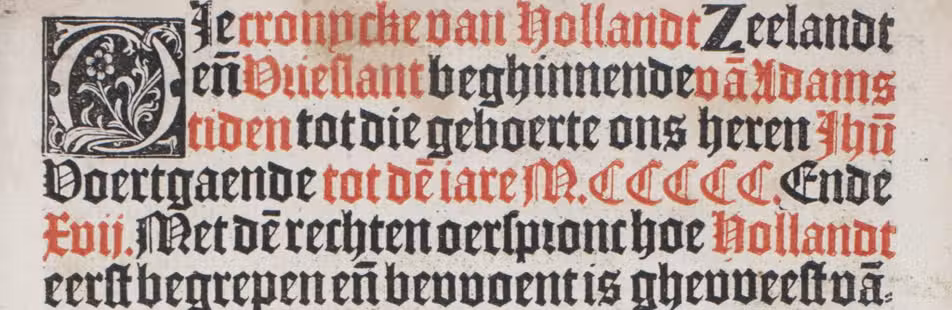 DJe cronycke van Hollandt Zeelandt
en̄ Vrieslant beghinnende vā Adams
tiden tot die geboerte ons heren Jhū
Voertgaende tot dē iare M.CCCCC. Ende
Xvij. Met dē rechten oerspronc hoe Hollandt
eerst begrepen en̄ bevvoent is ghevveest vā⸗